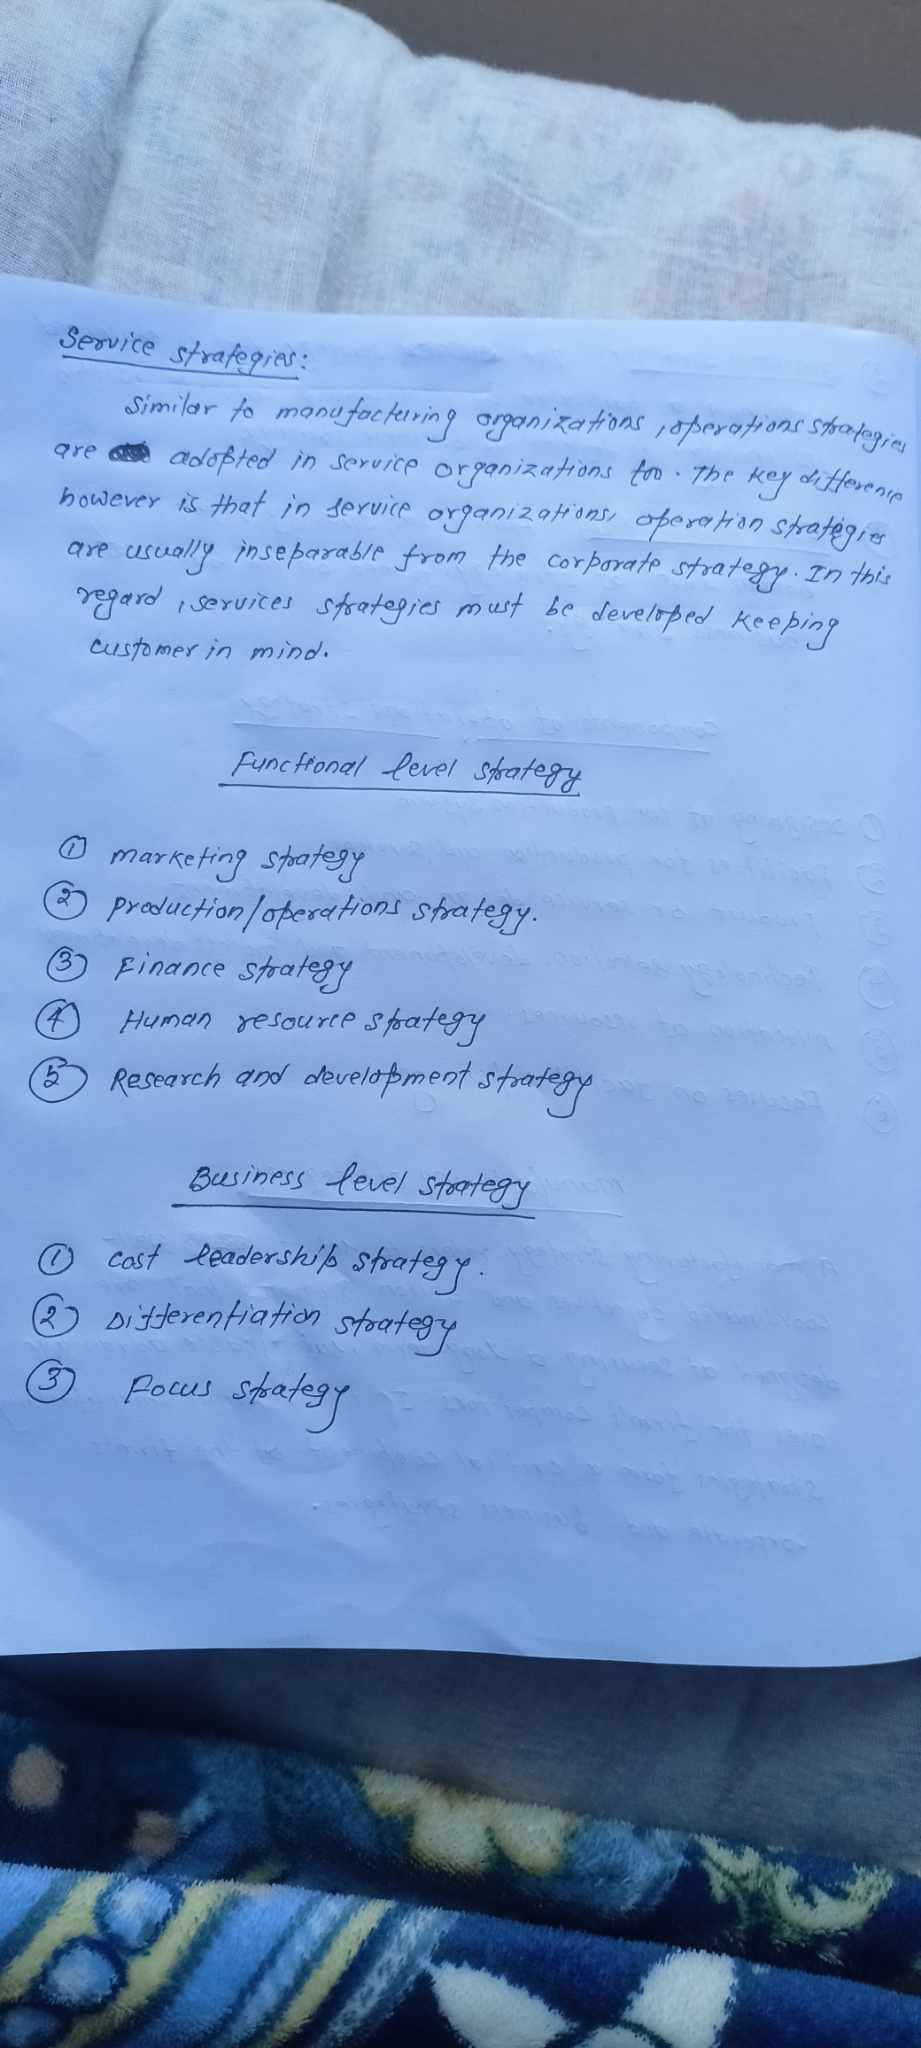 Service strategies:
Similar to manufacturing organizations, operations strategies
are adopted in service organizations too. The key difference
however is that in service organizations, operation strategies
are usually inseparable from the corporate strategy. In this
regard, services strategies must be developed keeping
customer in mind.
Functional level strategy
① marketing strategy
② production/operations strategy.
③ Finance strategy
④ Human resource strategy
⑤ Research and development strategy
Business level strategy
① cost leadership strategy.
② Differentiation strategy
③ Focus strategy